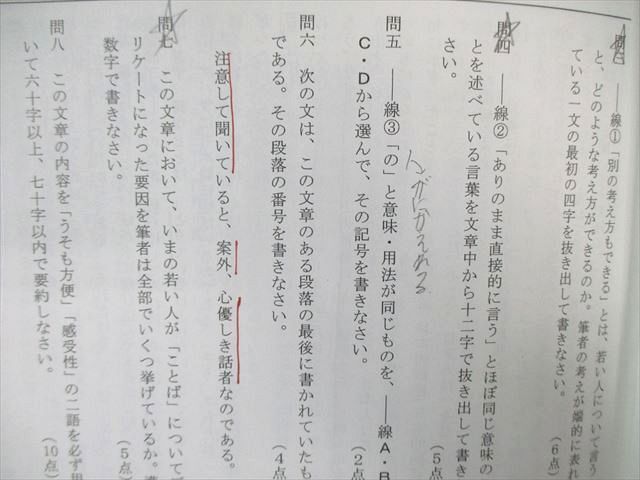 問三 ――線①「別の考え方もできる」とは、若い人について言う
と、どのような考え方ができるのか。筆者の考えが端的に表れ
ている一文の最初の四字を抜き出して書きなさい。
(6点)
問四 ――線②「ありのまま直接的に言う」とほぼ同じ意味の
とを述べている言葉を文章中から十二字で抜き出して書き
さい。
(5点
問五 ――線③「の」と意味・用法が同じものを、――線A・B
C・Dから選んで、その記号を書きなさい。
(2点
がにかえれる
問六 次の文は、この文章のある段落の最後に書かれていたも
である。その段落の番号を書きなさい。
(4点
注意して聞いていると、案外、心優しき話者なのである。
問七 この文章において、いまの若い人が「ことば」について
リケートになった要因を筆者は全部でいくつ挙げているか。
数字で書きなさい。
(5点)
問八 この文章の内容を「うそも方便」「感受性」の二語を必ず用
いて六十字以上、七十字以内で要約しなさい。
(10点)